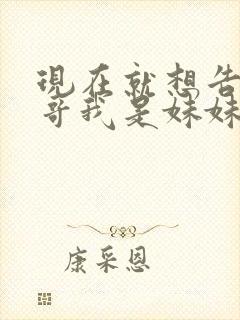 現在就想告
哥我是妹妹
康采恩